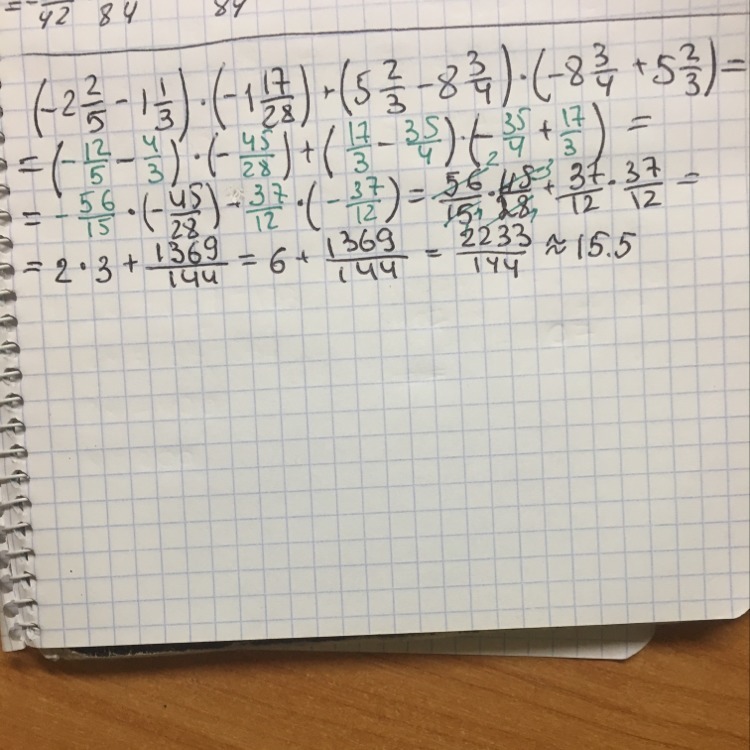 = - 42 84 84
(-2 2/5 - 1 1/3) · (-1 17/28) + (5 2/3 - 8 3/4) · (-8 3/4 + 5 2/3) =
= (-12/5 - 4/3) · (-45/28) + (17/3 - 35/4) · (-35/4 + 17/3) =
= -56/15 · (-45/28) - 37/12 · (-37/12) = 56/15 · 45/28 + 37/12 · 37/12 =
= 2 · 3 + 1369/144 = 6 + 1369/144 = 2233/144 ≈ 15.5